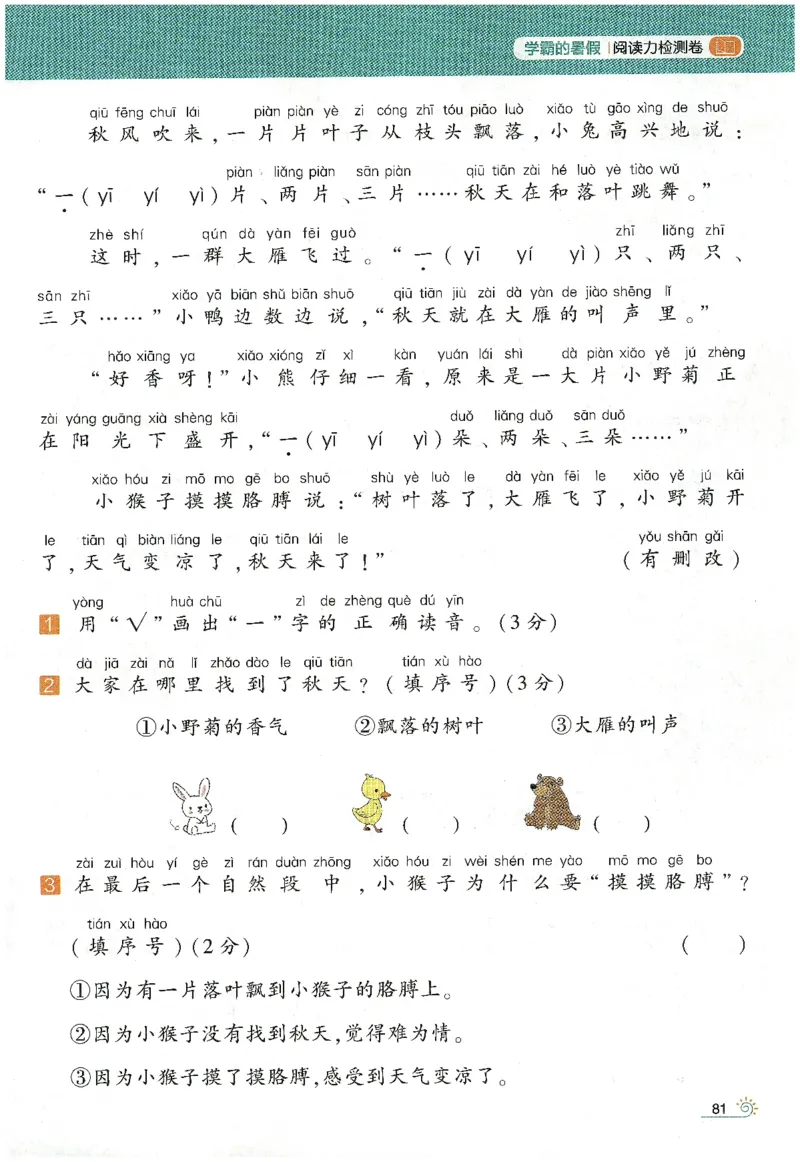 学霸的暑假 | 阅读力检测卷
qiū fēng chuī lái piàn piàn yè zi cóng zhī tóu piāo luò xiǎo tù gāo xìng de shuō
秋风吹来,一片片叶子从枝头飘落,小兔高兴地说:
piàn liǎng piàn sān piàn qiū tiān zài hé luò yè tiào wǔ
“一(yī yí yì)片、两片、三片……秋天在和落叶跳舞。”
zhè shí qún dà yàn fēi guò zhī liǎng zhī
这时,一群大雁飞过。“一(yī yí yì)只、两只、
sān zhī xiǎo yā biān shǔ biān shuō qiū tiān jiù zài dà yàn de jiào shēng lǐ
三只……”小鸭边数边说,“秋天就在大雁的叫声里。”
hǎo xiāng ya xiǎo xióng zǐ xì kàn yuán lái shì dà piàn xiǎo yě jú zhèng
“好香呀!”小熊仔细一看,原来是一大片小野菊正
zài yáng guāng xià shèng kāi duǒ liǎng duǒ sān duǒ
在阳光下盛开,“一(yī yí yì)朵、两朵、三朵……”
xiǎo hóu zi mō mo gē bo shuō shù yè luò le dà yàn fēi le xiǎo yě jú kāi
小猴子摸摸胳膊说:“树叶落了,大雁飞了,小野菊开
le tiān qì biàn liáng le qiū tiān lái le yǒu shān gǎi
了,天气变凉了,秋天来了!” (有删改)
yòng huà chū zì de zhèng què dú yīn
1 用“√”画出“一”字的正确读音。(3分)
dà jiā zài nǎ lǐ zhǎo dào le qiū tiān tián xù hào
2 大家在哪里找到了秋天?(填序号)(3分)
①小野菊的香气 ②飘落的树叶 ③大雁的叫声
( ) ( ) ( )
zài zuì hòu yí gè zì rán duàn zhōng xiǎo hóu zi wèi shén me yào mō mo gē bo
3 在最后一个自然段中,小猴子为什么要“摸摸胳膊”?
tián xù hào
(填序号)(2分) ( )
①因为有一片落叶飘到小猴子的胳膊上。
②因为小猴子没有找到秋天,觉得难为情。
③因为小猴子摸了摸胳膊,感受到天气变凉了。
81